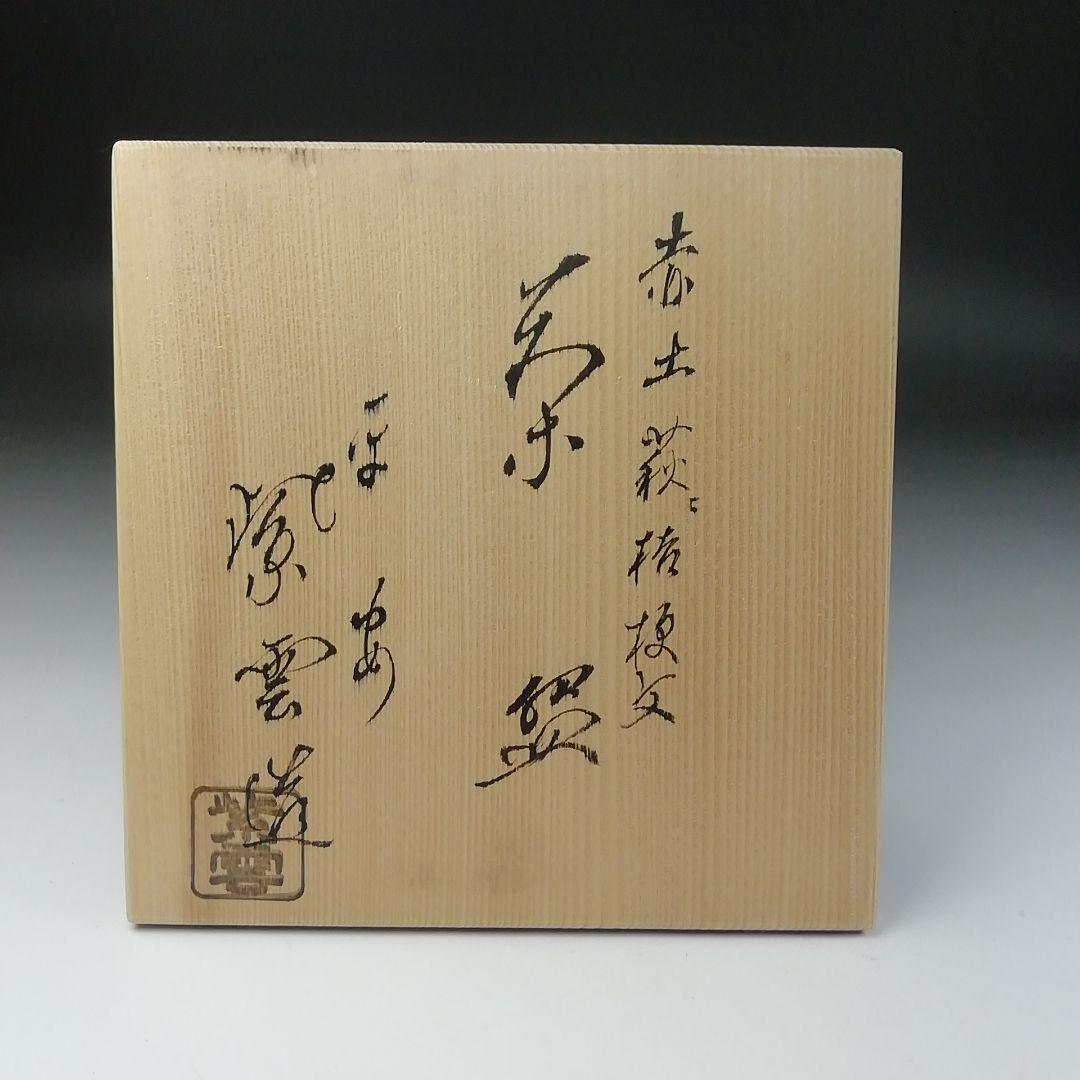 赤土萩に桔梗文
茶盌
平安
紫雲造
紫雲